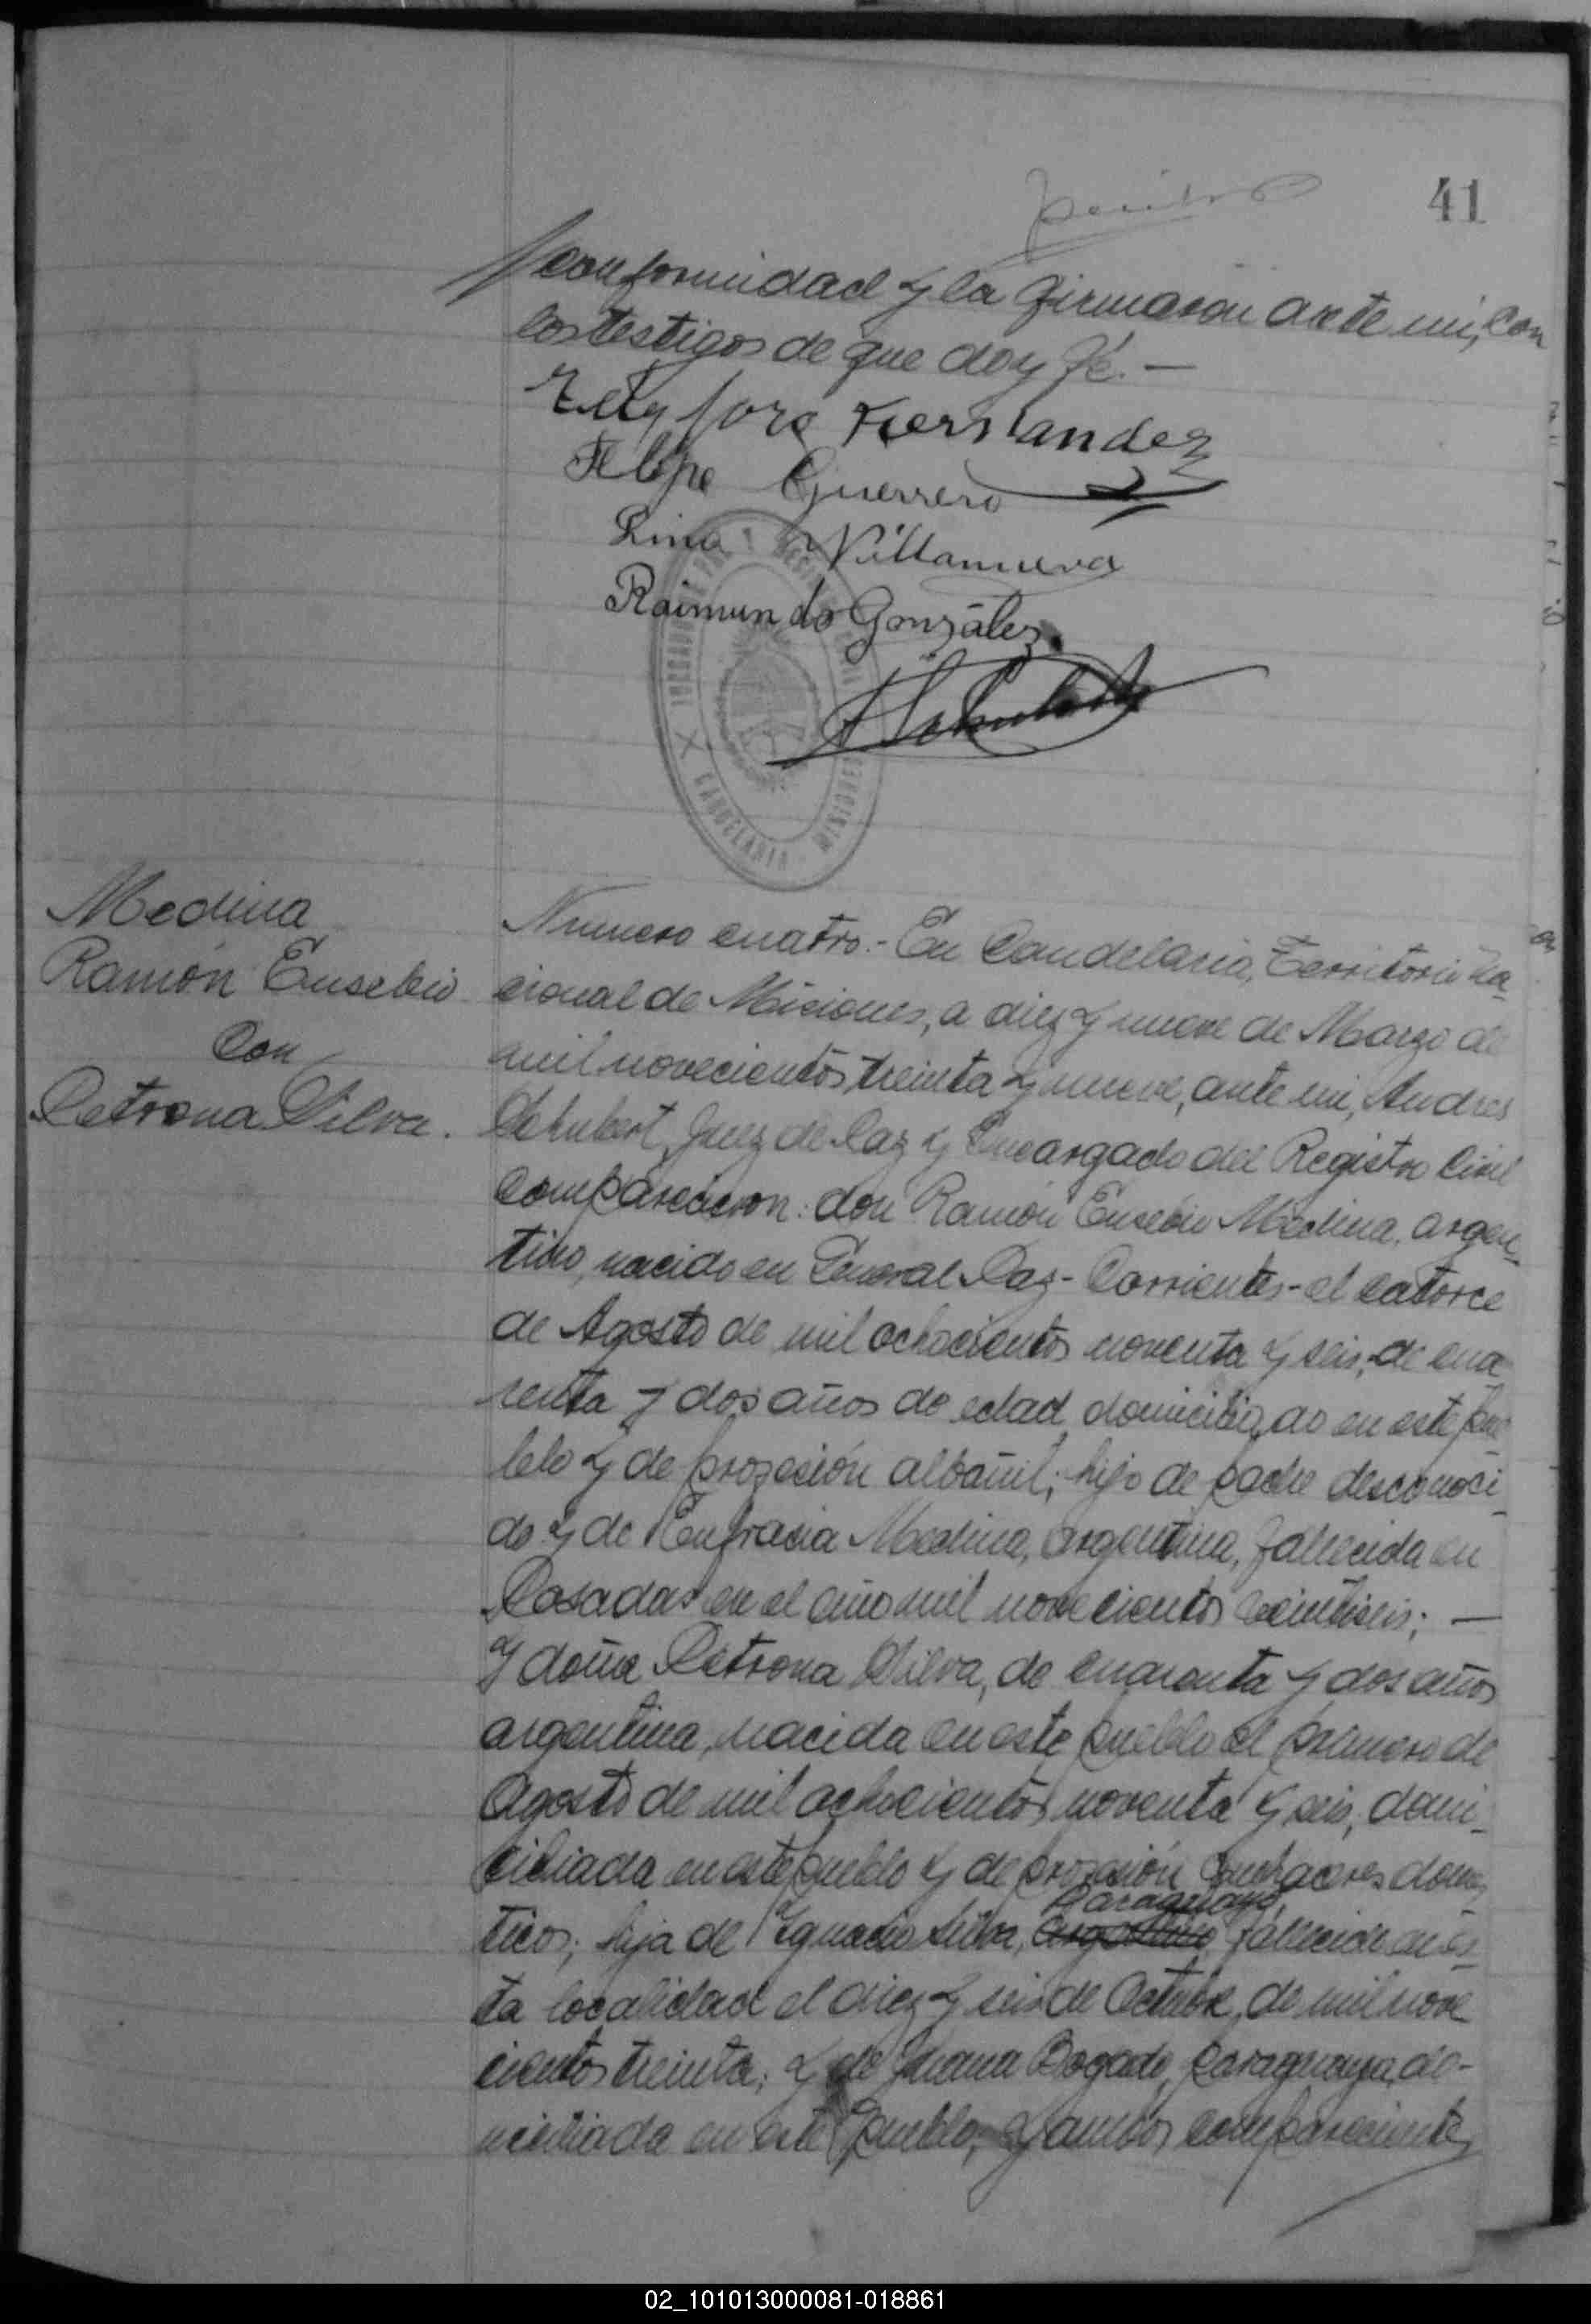 41
conformidad y la firmaron ante mi, con
los testigos de que doy fé. —
Fernandez
Felipe Guerrero
Lino Villanueva
Raimundo González
ASchubert
JUZGADO DE PAZ
CANDELARIA - MISIONES
Medina
Ramón Eusebio
Con
Petrona Silva.
Numero cuatro.- En Candelaria, Territorio Na-
cional de Miciones, a diez y nueve de Marzo de
mil novecientos treinta y nueve, ante mi, Andres
Schubert, Juez de Paz y Encargado del Registro Civil
Comparecieron: don Ramón Eusebio Medina, argen-
tino, nacido en General Paz - Corrientes - el catorce
de Agosto de mil ochocientos noventa y seis, de cua
renta y dos años de edad domiciliado en este pue
blo y de profesión albañil; hijo de padre desconoci-
do y de Eufracia Medina, argentina, fallecida en
Posadas en el año mil novecientos veintiseis; —
y doña Petrona Silva, de cuarenta y dos años
argentina, nacida en este pueblo el primero de
Agosto de mil ochocientos noventa y seis, domi-
ciliada en este pueblo y de profesión quehaceres domes-
Paraguayo,
ticos; hija de Ignacio Silva, argentino fallecido en es-
ta localidad el diez y seis de Octubre, de mil nove
cientos treinta; y de Juana Bogado, paraguaya, do-
miciliada en este pueblo; y ambos comparecientes
02_101013000081-018861